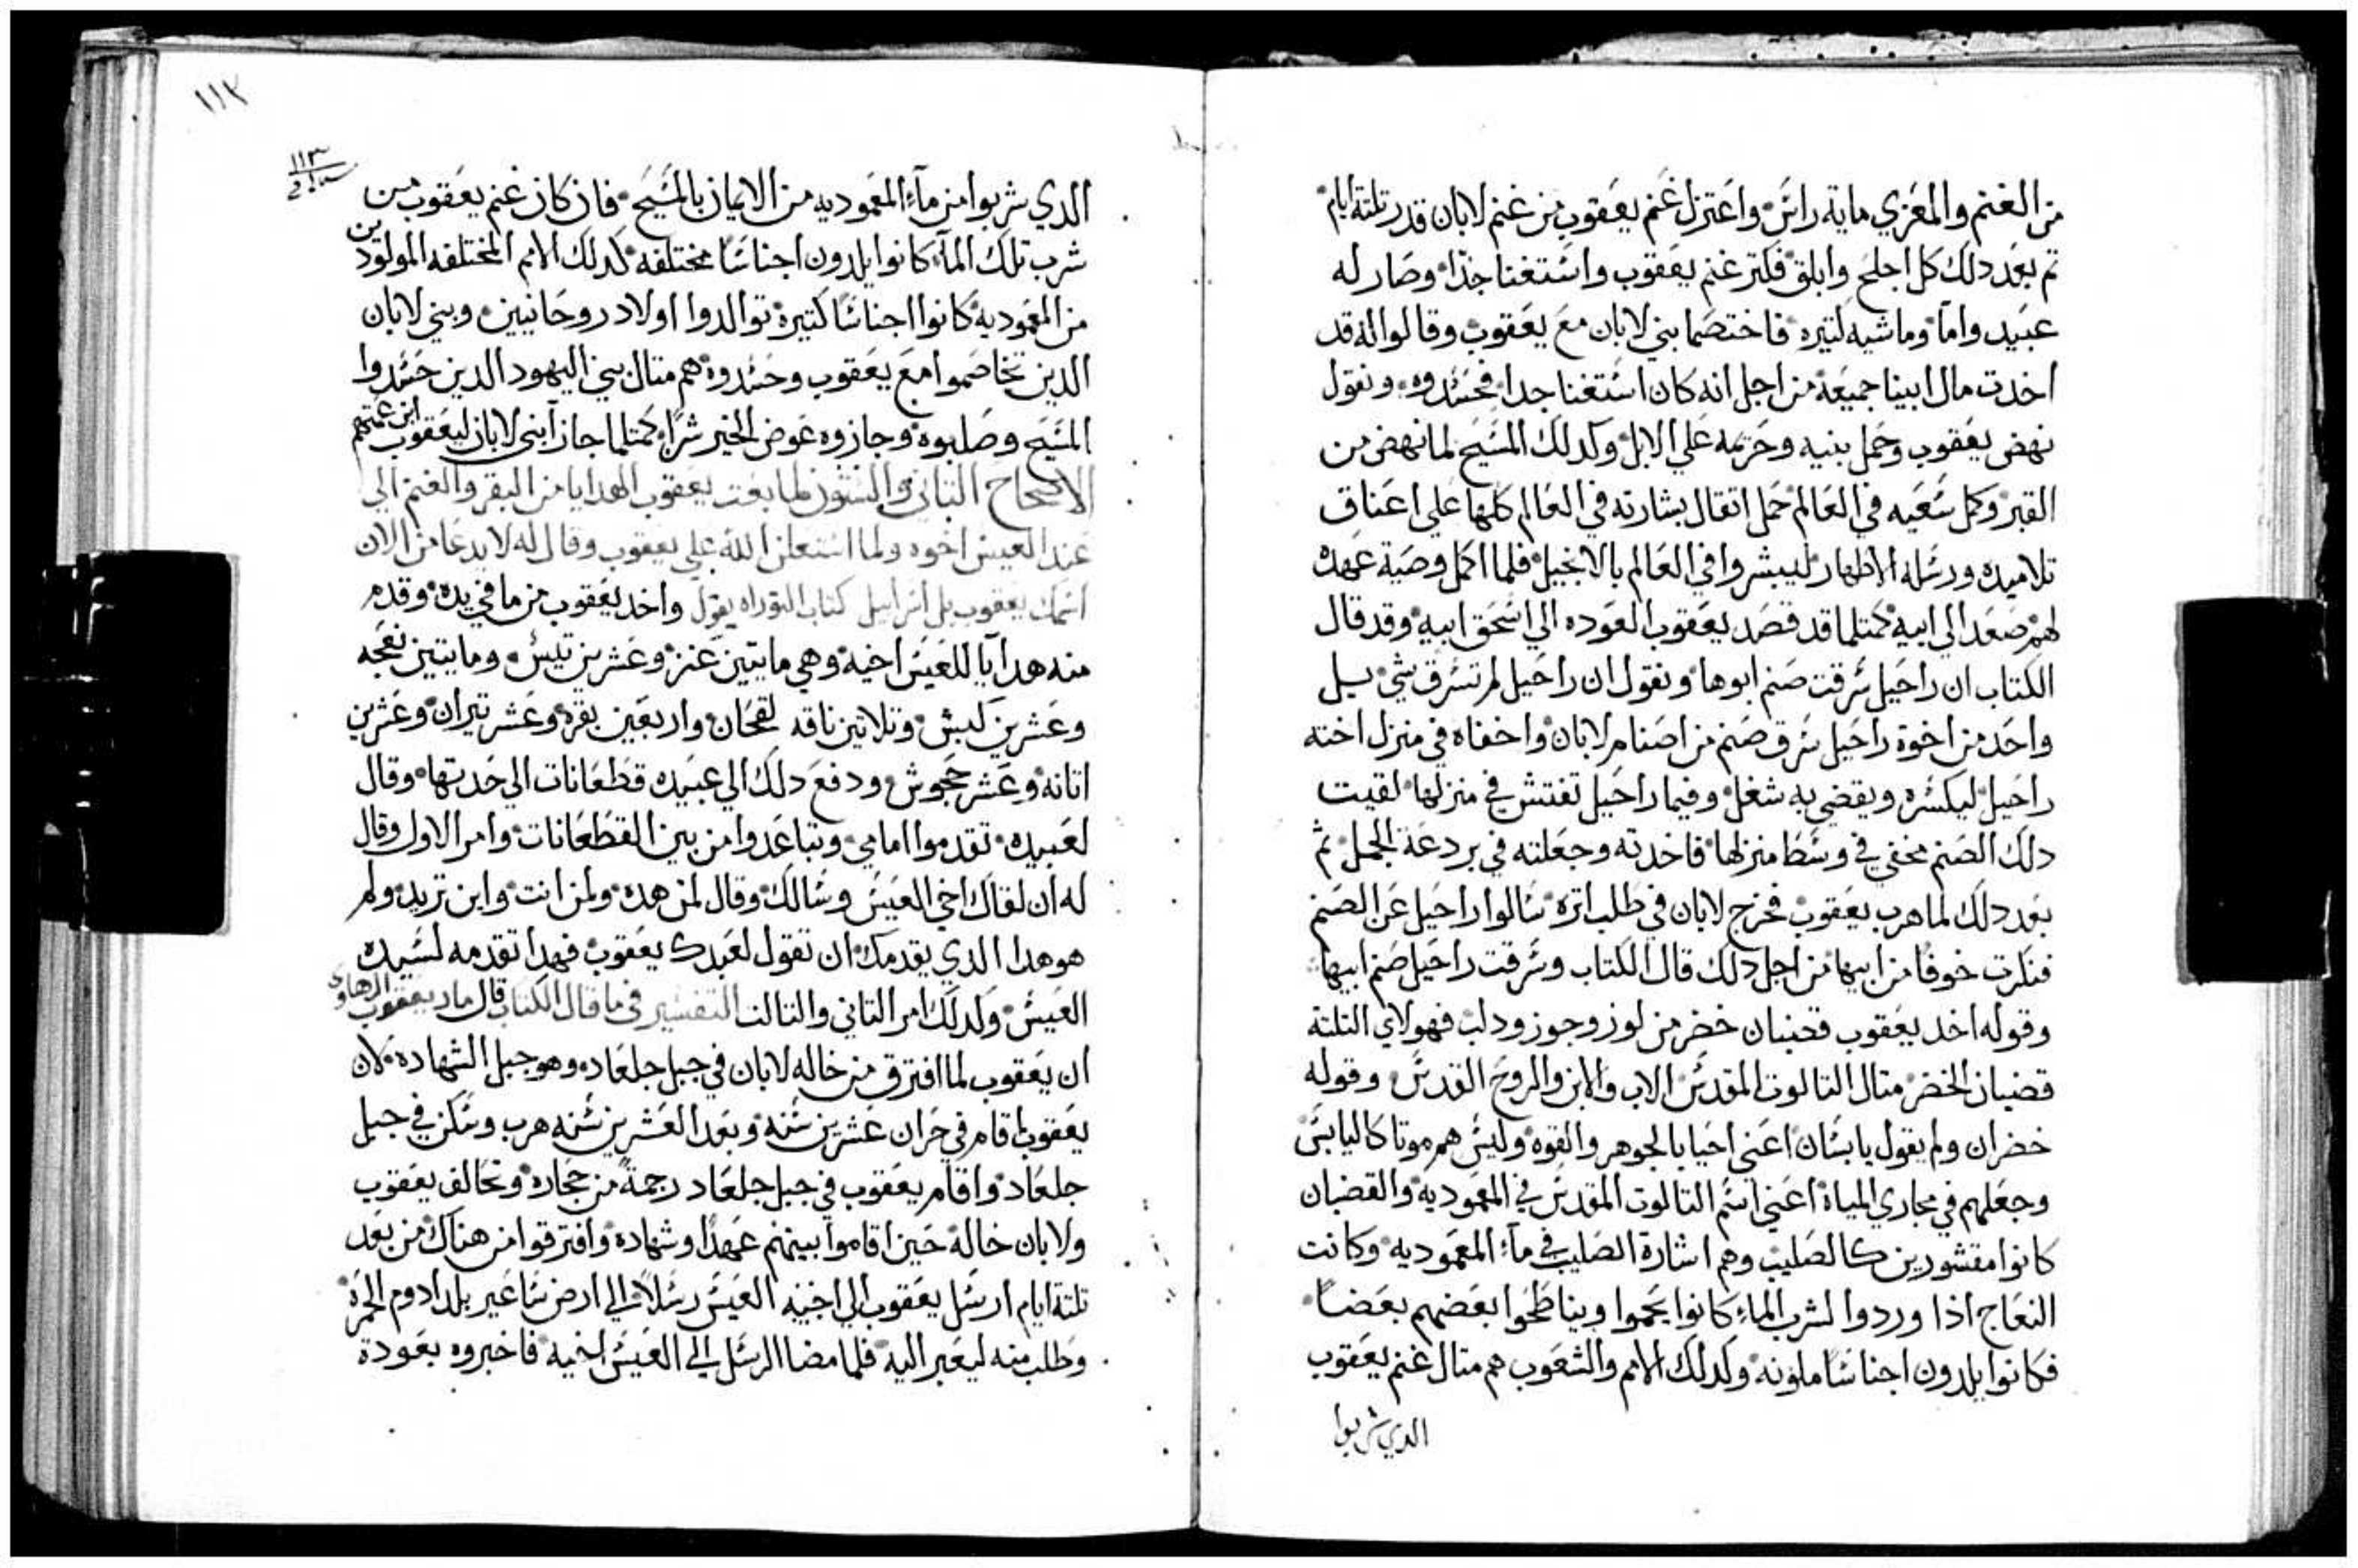 من الغنم والمعزي ماية راس واعتزل غنم يعقوب من غنم لابان قدر تلتة ايام
تم بعد دلك كل اجلح وابلق فكتر غنم يعقوب واستغنا جدا وصار له
عبيد واما وماشيه كتيره فاختصما بني لابان مع يعقوب وقالوا له قد
اخدت مال ابينا جميعه من اجل انه كان استغنا جدا فحسدوه ونقول
نهض يعقوب وحمل بنيه وحريمه علي الابل وكدلك المسيح لما نهض من
القبر وكمل سعيه في العالم حمل اتقال بشارته في العالم كلها علي اعناق
تلاميده ورسله الاطهار ليبشروا في العالم بالانجيل فلما اكمل وصية عهده
لهم صعد الي ابيه كمتلما قد قصد يعقوب العوده الي اسحق ابيه وقد قال
الكتاب ان راحيل سرقت صنم ابوها ونقول ان راحيل لم تسرق شي بل
واحد من اخوة راحيل سرق صنم من اصنام لابان واخفاه في منزل اخته
راحيل ليكسره ويقضي به شغل وفيما راحيل تفتش في منزلها لقيت
دلك الصنم مخفي في وسط منزلها فاخدته وجعلته في بردعة الجمل ثم
بعد دلك لما هرب يعقوب فخرج لابان في طلب اتره سالوا راحيل عن الصنم
فنكرت خوفا من ابيها من اجل دلك قال الكتاب وسرقت راحيل صنم ابيها
وقوله اخد يعقوب قضبان خضر من لوز وجوز ودلب فهولاي التلتة
قضبان الخضر متال التالوت المقدس الاب والابن والروح القدس وقوله
خضران ولم يقول يابسان اعني احيا بالجوهر والقوه وليس هم موتا كاليابس
وجعلهم في مجاري المياة اعني اسم التالوت المقدس في المعموديه والقضبان
كانوا مقشورين كالصليب وهم اشارة الصليب في مآء المعموديه وكانت
النعاج اذا وردوا لشرب الماء كانوا يحموا ويناطحوا بعضهم بعضا
فكانوا يلدون اجناسا ملونه وكدلك الامم والشعوب هم متال غنم يعقوب
الدي شربوا
١١٣
١١٣
الدي شربوا من مآء المعموديه من الايمان بالمسيح فان كان غنم يعقوب من
شرب تلك المآء كانوا يلدون اجناسا مختلفه كدلك الامم المختلفه المولود ين
من المعموديه كانوا اجناسا كتيرة توالدوا اولاد روحانيين وبني لابان
الدين تخاصموا مع يعقوب وحسدوه هم متال بني اليهود الدين حسدوا
المسيح وصلبوه وجازوه عوض الخير شرا كمتلما جازا بني لابان ليعقوب ابن عمتهم
الاصحاح التاني والستون لما بعت يعقوب الهدايا من البقر والغنم الي
عند العيس اخوه ولما استعلن الله علي يعقوب وقال له لا يدعا من الان
اسمك يعقوب بل اسراييل كتاب التوراه يقول واخد يعقوب من ما في يده وقدم
منه هدايا للعيس اخيه وهي مايتين عنز وعشرين تيس ومايتين نعجه
وعشرين كبش وتلاتين ناقه لقحان واربعين بقره وعشر تيران وعشرين
اتانه وعشر جحوش ودفع دلك الي عبيده قطعانات الي حدتها وقال
لعبيده تقدموا امامي وتباعدوا من بين القطعانات وامر الاول وقال
له ان لقاك اخي العيس وسالك وقال لمن هده ولمن انت واين تريد ولم
هو هدا الدي يقدمك ان تقول لعبدك يعقوب فهدا تقدمه لسيده
العيس وكدلك امر التاني والتالت التفسير في ما قال الكتاب قال مار يعقوب الرهاوي
ان يعقوب لما افترق من خاله لابان في جبل جلعاد وهو جبل الشهاده لان
يعقوب لما قام في حران عشرين سنه وبعد العشرين سنه هرب وسكن في جبل
جلعاد واقام يعقوب في جبل جلعاد رجمة من حجاره وتحالف يعقوب
ولابان خاله حين اقاموا بينهم عهدا وشهاده وافترقوا من هناك من بعد
تلتة ايام ارسل يعقوب الي اخيه العيس رسلا الي ارض ساعير بلد ادوم الحمره
وطلب منه ليعبر اليه فلما مضا الرسل الي العيس اخيه فاخبروه بعودة